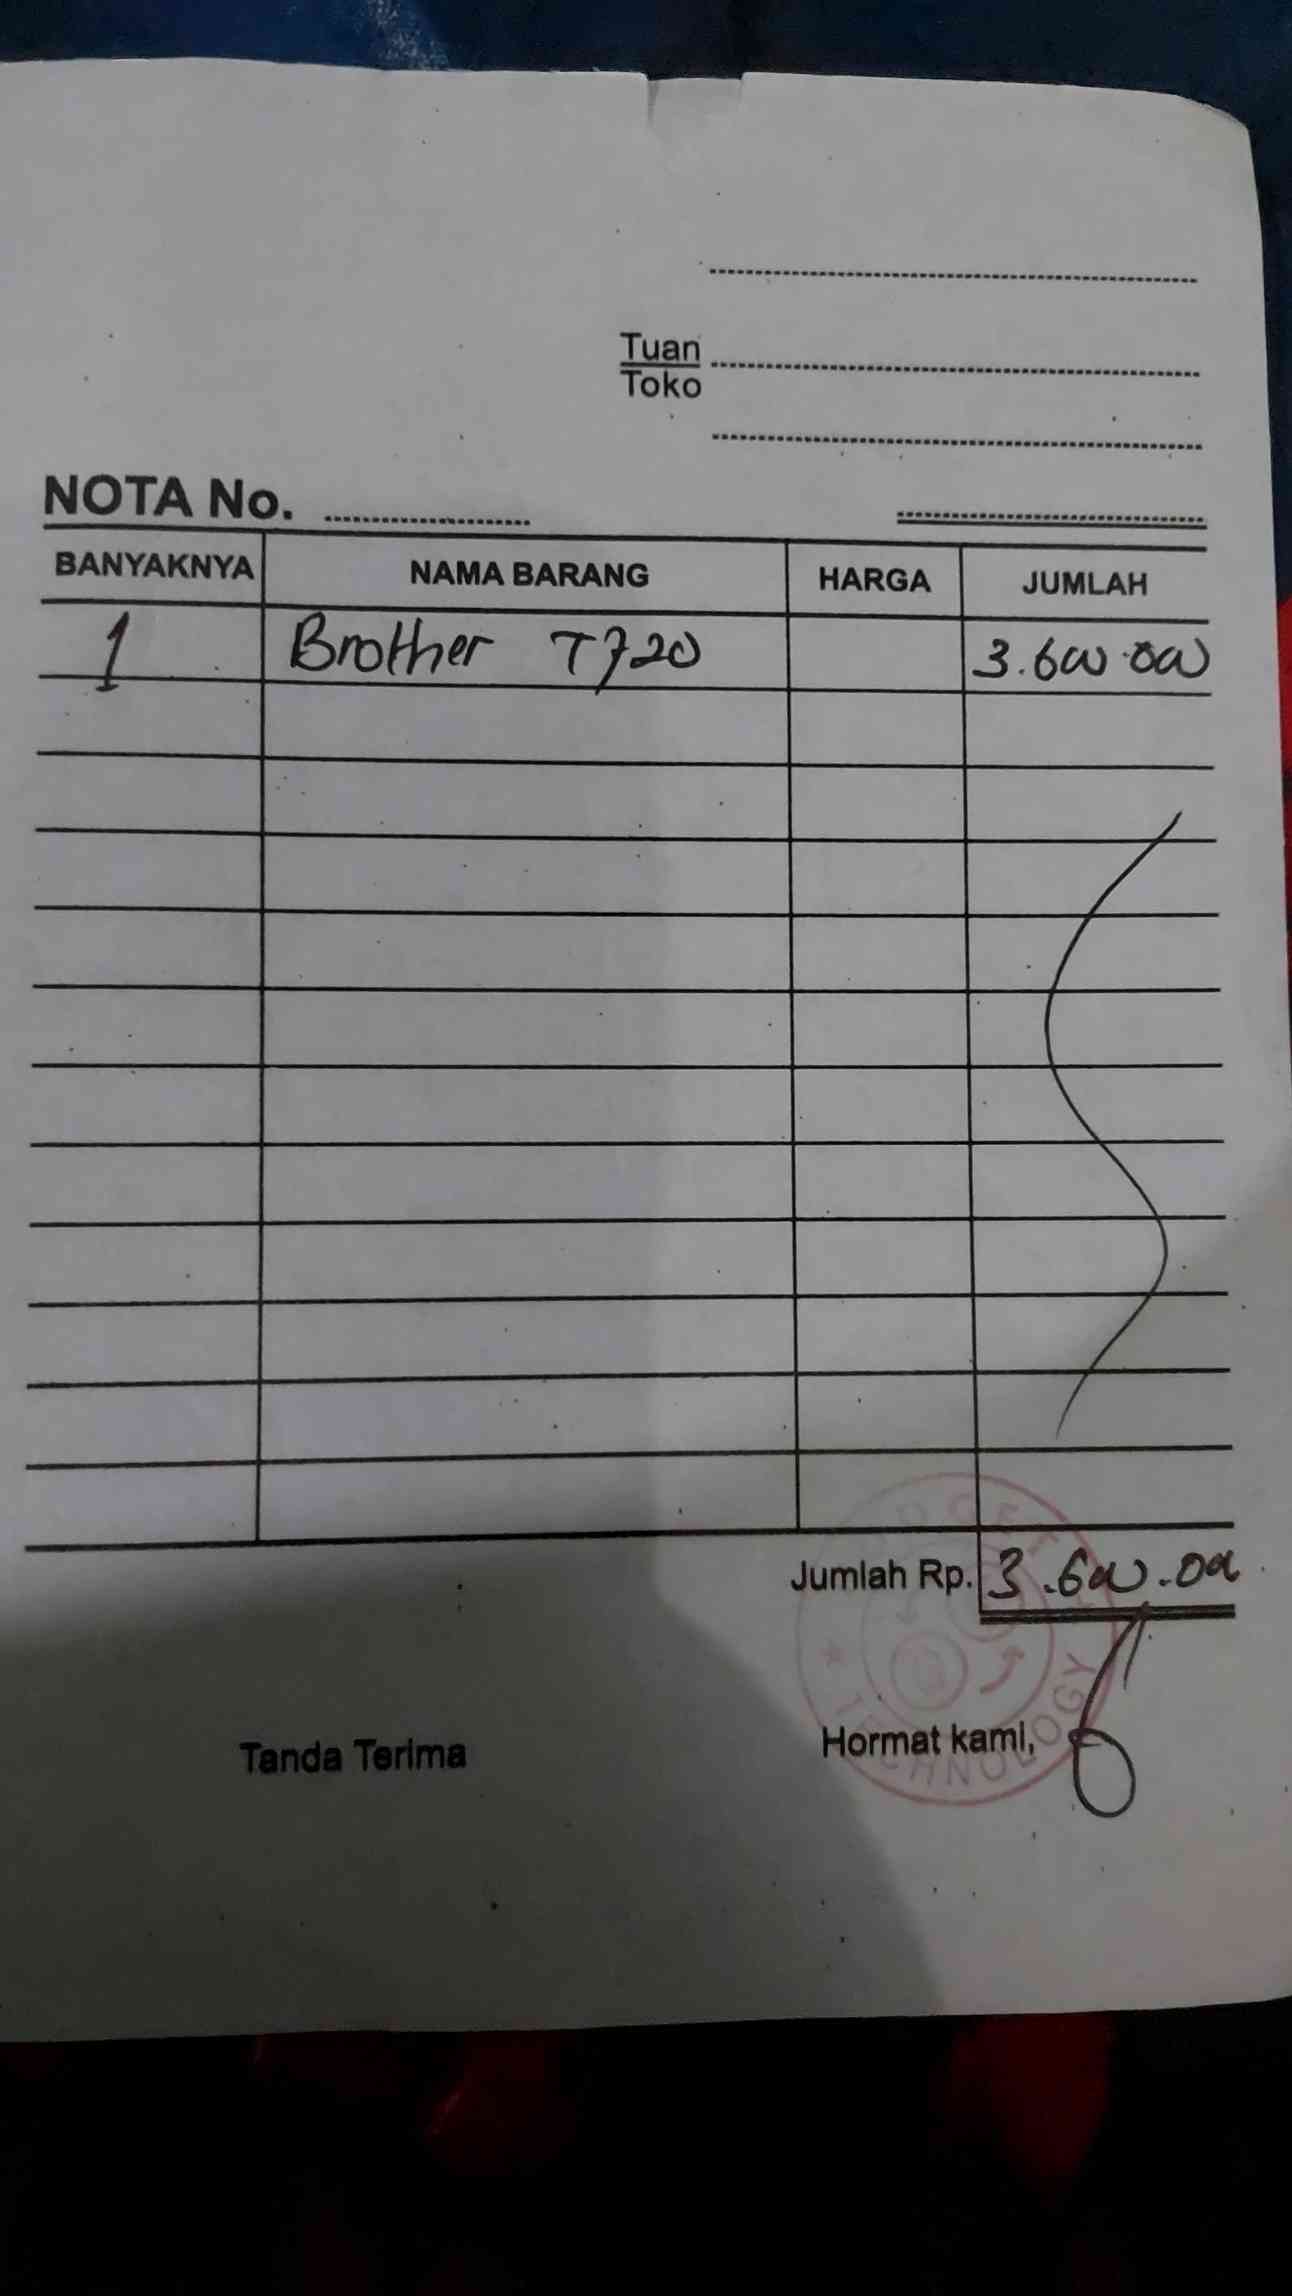 Tuan
Toko
NOTA No.
BANYAKNYA NAMA BARANG HARGA JUMLAH
1 Brother T720 3.600.000
Jumlah Rp. 3.600.000
TECHNOLOGY
Tanda Terima Hormat kami,